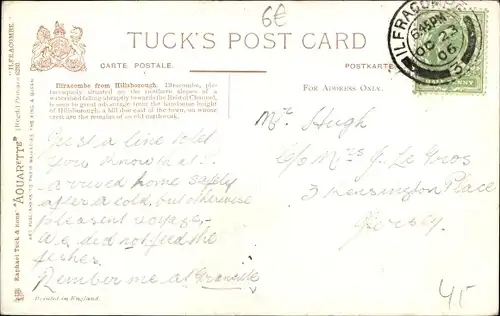 6€
TUCK'S POST CARD
CARTE POSTALE.
POSTKARTE
ILFRACOMBE
6.45PM
OC 23
06
Ilfracombe from Hillsborough. Ilfracombe, pic-
turesquely situated on the northern slopes of a
watershed falling abruptly towards the Bristol Channel,
is seen to great advantage from the handsome height
of Hillsborough, a hill due east of the town, on whose
crest are the remains of an old earthwork.
FOR ADDRESS ONLY.
Just a line to let
you know that I
arrived home safely
after a cold, but otherwise
pleasant voyage,
We did not feed the
fishes.
Rember me at Granville
Mr. Hugh
c/o Mrs J. Le Gros
3 Kensington Place
Jersey.
45
Printed in England.
"ILFRACOMBE.
Raphael Tuck & Sons' "AQUARETTE"
ART PUBLISHERS TO THEIR MAJESTIES THE KING & QUEEN.